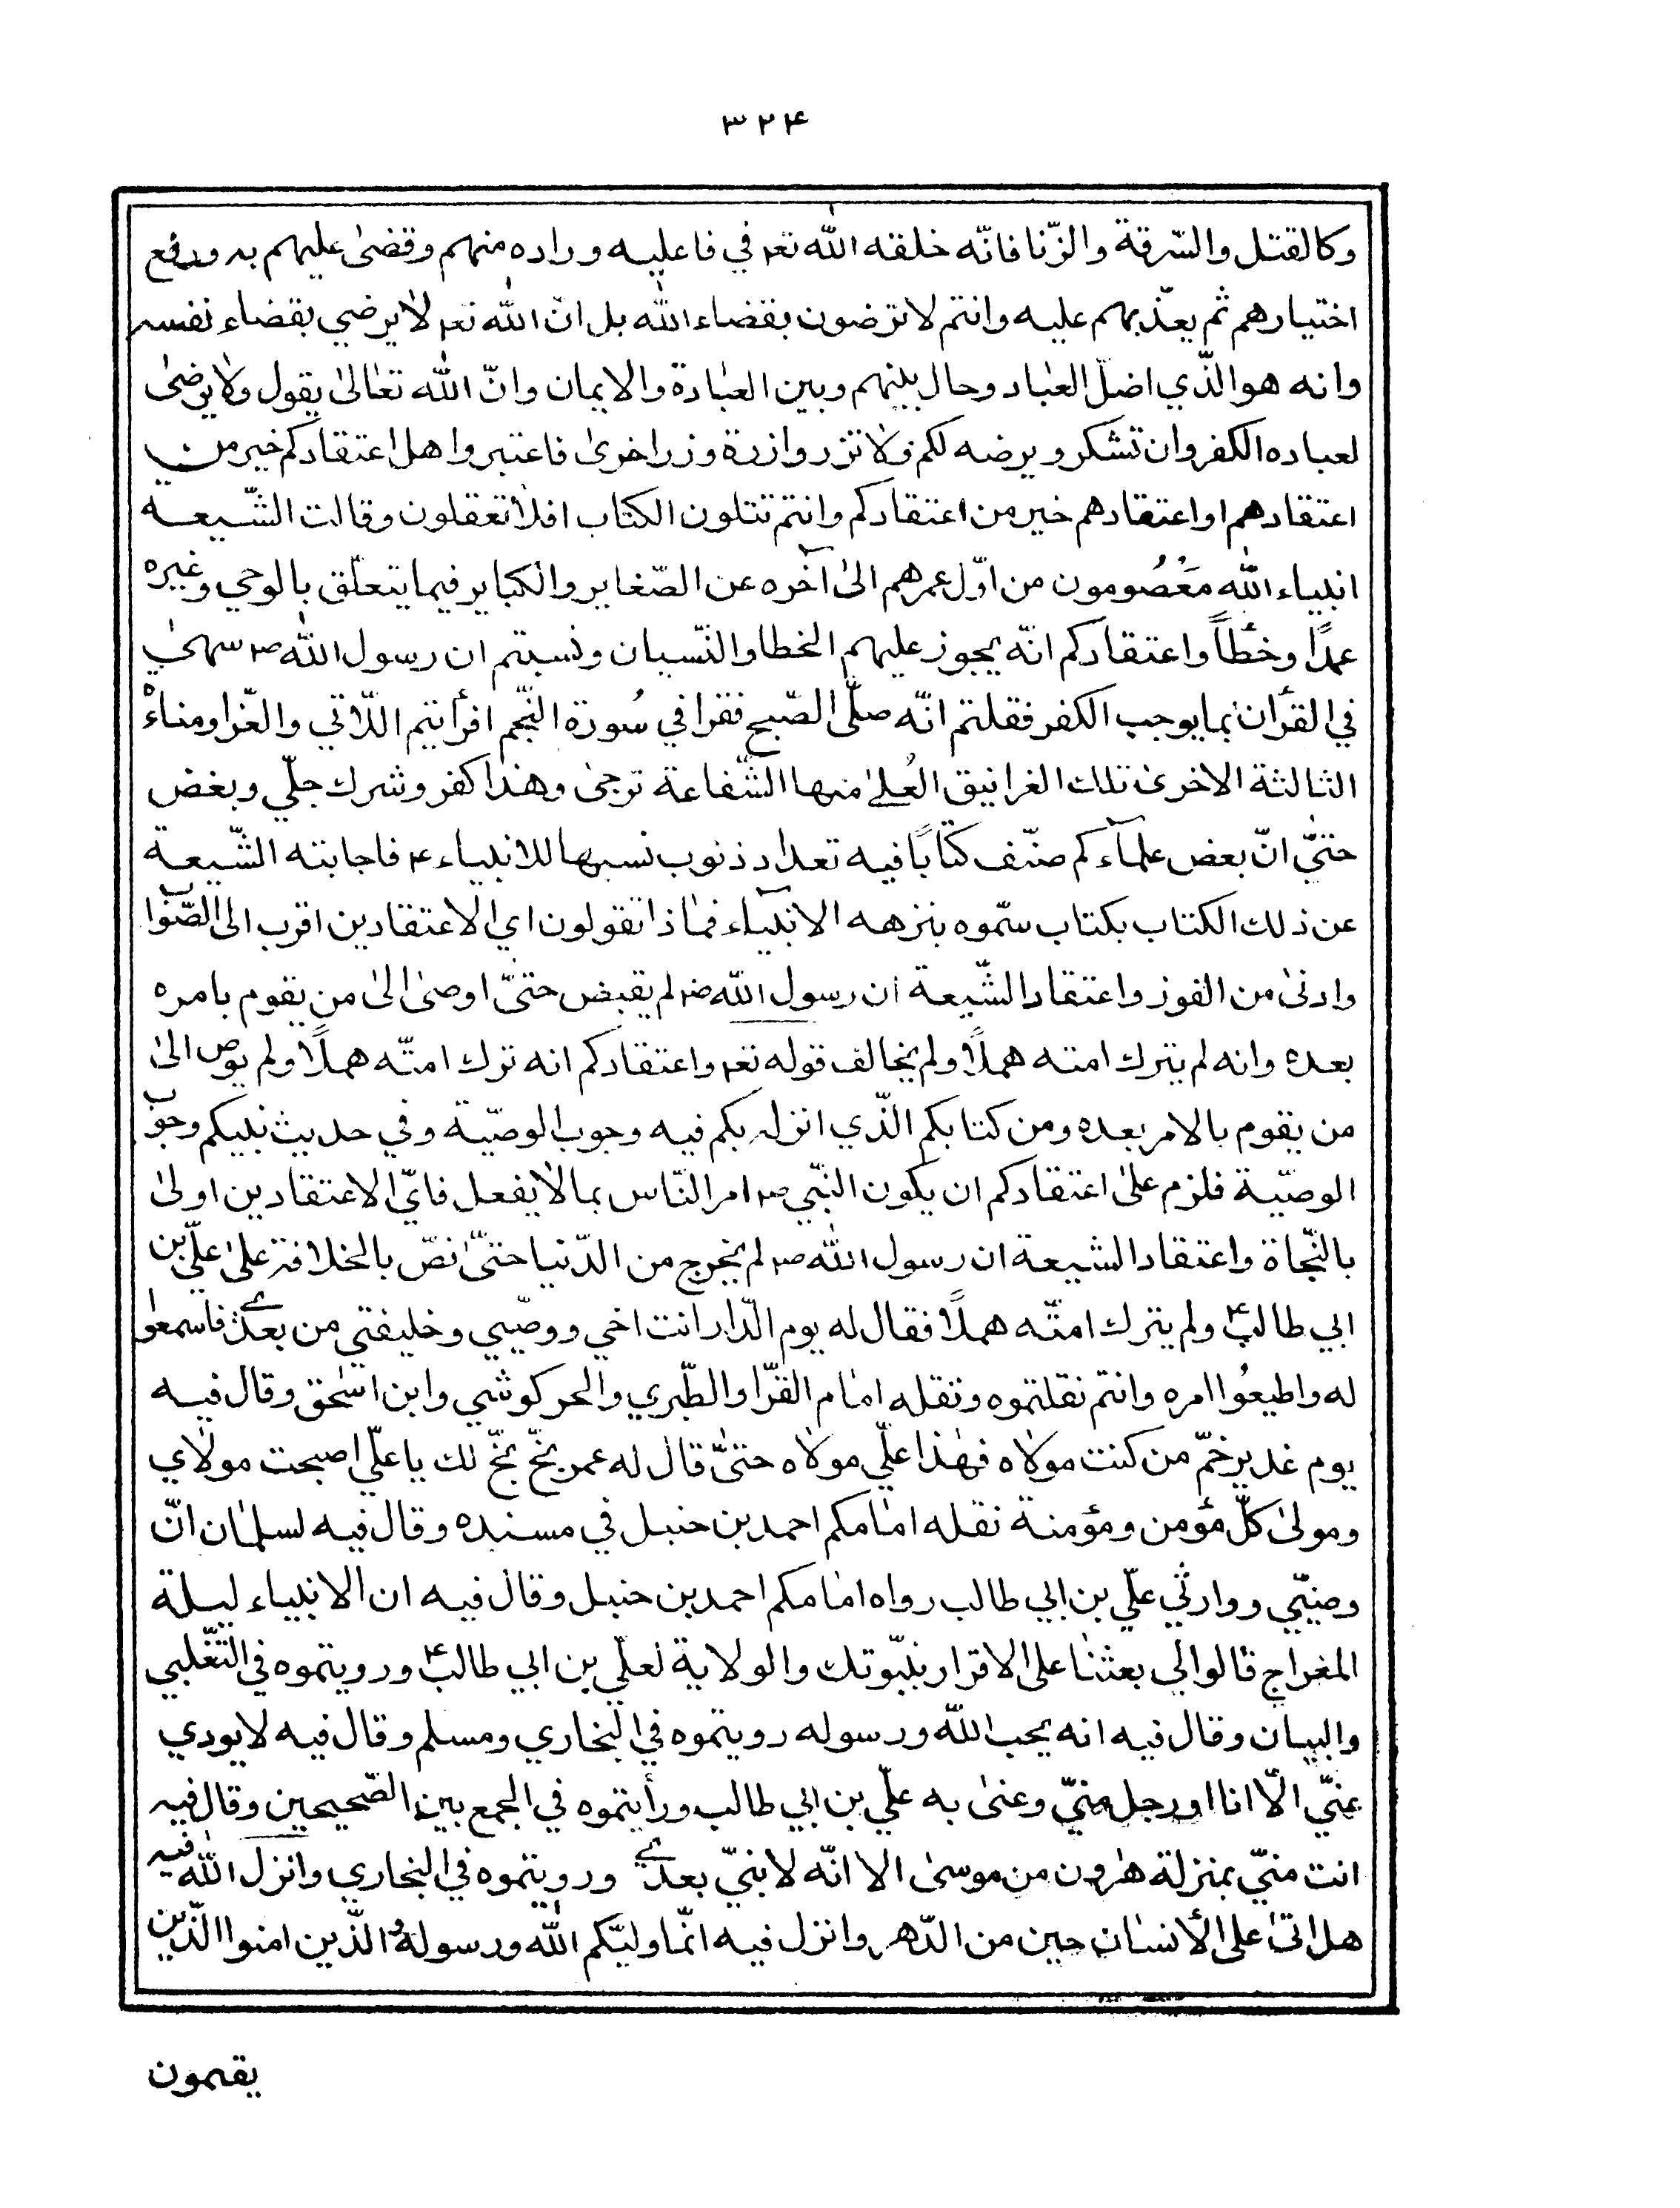 ۳۲۴
وكالقتل والسّرقة والزّنا فانّه خلقه الله تعم في فاعليه وراده منهم وقضىٰ عليهم به ورفع
اختيارهم ثم يعذّبهم عليه وانتم لا ترضون بقضاء الله بل انّ الله تعم لا يرضي بقضاء نفسه
وانه هو الّذي اضلّ العباد وحال بينهم وبين العبادة والايمان وانّ الله تعالىٰ يقول ولا يرضىٰ
لعباده الكفر وان تشكرو يرضه لكم ولا تزر وازرة وزر اخرىٰ فاعتبروا هل اعتقادكم خير من
اعتقادهم او اعتقادهم خير من اعتقادكم وانتم تتلون الكتاب افلا تعقلون وقالت الشّيعه
انبياء الله مَعْصُومون من اوّل عمرهم الىٰ آخره عن الصّغاير والكباير فيما يتعلّق بالوحي وغيره
عمدًا وخطأً واعتقادكم انّه يجوز عليهم الخطا والنّسيان ونسبتم ان رسول الله ص سهىٰ
في القرأن بما يوجب الكفر فقلتم انّه صلّى الصّبح فقرا في سُورة النّجم افرأيتم اللّاتي والعّزا ومناة
الثالثة الاخرىٰ تلك الغرانيق العُلىٰ منها الشّفاعة ترجىٰ وهذا كفر وشرك جلّي وبغض
حتىّٰ انّ بعض علمآءكم صنّف كتابًا فيه تعداد ذنوب نسبها للانبياء ۴ فاجابته الشّيعة
عن ذلك الكتاب بكتاب سمّوه بنزهه الانبياء فماذا تقولون اي الاعتقادين اقرب الى الصّواب
وادنىٰ من الفوز واعتقاد الشّيعة ان رسول الله ص لم يقبض حتىّٰ اوصىٰ الىٰ من يقوم بامره
بعده وانه لم يترك امته هملًا ولم يخالف قوله تعم واعتقادكم انه ترك امتّه هملًا ولم يوص الىٰ
من يقوم بالامر بعده ومن كتابكم الّذي انزل بكم فيه وجوب الوصيّة وفي حديث نبيكم وجوب
الوصيّة فلزم علىٰ اعتقادكم ان يكون النبّي ص امر النّاس بما لا يفعل فايّ الاعتقادين اولىٰ
بالنّجاة واعتقاد الشيعة ان رسول الله ص لم يخرج من الدّنيا حتىّٰ نصّ بالخلافة علىٰ علّي بن
ابي طالب۴ ولم يترك امتّه هملًا فقال له يوم الدّار انت اخي ووصّيي وخليفتي من بعدي فاسمعوا
له واطيعُوا امره وانتم نقلتموه ونقله امام القرّا والطّبري والحركوشي وابن اسٰحق وقال فيه
يوم غدير خمّ من كنت مولاه فهٰذا علّي مولاه حتىّٰ قال له عمر بخّ بخّ لك يا علّي اصبحت مولاي
ومولىٰ كلّ مؤمن ومؤمنة نقله امامكم احمد بن حنبل في مسنده وقال فيه لسلمان انّ
وصيّي ووارثي علّي بن ابي طالب رواه امامكم احمد بن حنبل وقال فيه ان الانبياء ليلة
المعراج قالوا لي بعثنا على الاقرار بنبّوتك والولاية لعلّي بن ابي طالب۴ ورويتموه في الثّعلبي
والبيان وقال فيه انه يحب الله ورسوله رويتموه في البخاري ومسلم وقال فيه لا يودي
عنّي الّا انا او رجل منّي وعنىٰ به علّي بن ابي طالب ورأيتموه في الجمع بين الصّحيحين وقال فيه
انت منّي بمنزلة هٰرون من موسىٰ الا انّه لا نبيّ بعدي ورويتموه في البخاري وانزل الله فيه
هل اتىٰ على الأنسان حين من الدّهر وانزل فيه انّما وليّكم الله ورسولهُ والّذين امنوا الّذين
يقيمون